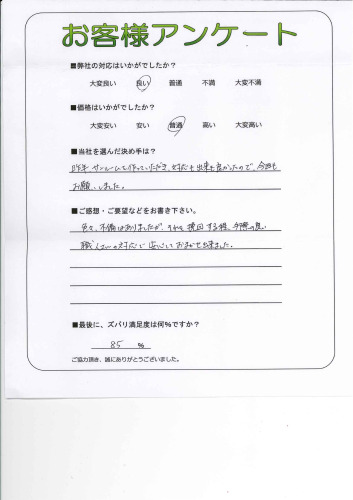 お客様アンケート
■弊社の対応はいかがでしたか？
大変良い 良い 普通 不満 大変不満
■価格はいかがでしたか？
大変安い 安い 普通 高い 大変高い
■当社を選んだ決め手は？
昨年 サンルームを作っていただき、対応も出来も良かったので、今回も
お願いしました。
■ご感想・ご要望などをお書き下さい。
色々、不備はありましたが、それを挽回する程、手際の良い
職人さんの対応で安心しておまかせ出来ました。
■最後に、ズバリ満足度は何%ですか？
85 %
ご協力頂き、誠にありがとうございました。